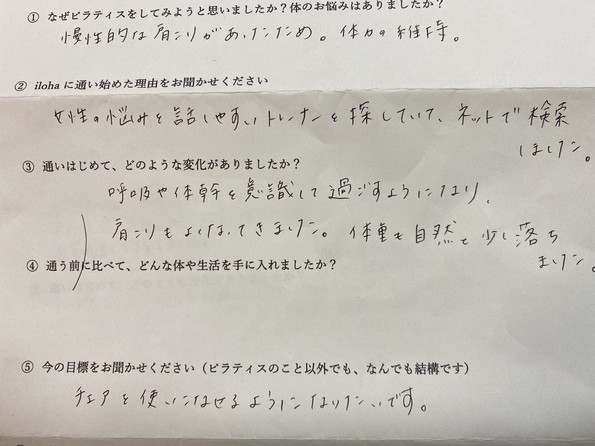 ① なぜピラティスをしてみようと思いましたか？体のお悩みはありましたか？
慢性的な肩こりがあったため。体力の維持。
② iloha に通い始めた理由をお聞かせください
女性の悩みを話しやすいトレーナーを探していて、ネットで検索
しました。
③ 通いはじめて、どのような変化がありましたか？
呼吸や体幹を意識して過ごすようになり、
肩こりもよくなってきました。体重も自然と少し落ち
ました。
④ 通う前に比べて、どんな体や生活を手に入れましたか？
⑤ 今の目標をお聞かせください（ピラティスのこと以外でも、なんでも結構です）
チェアを使いこなせるようになりたいです。